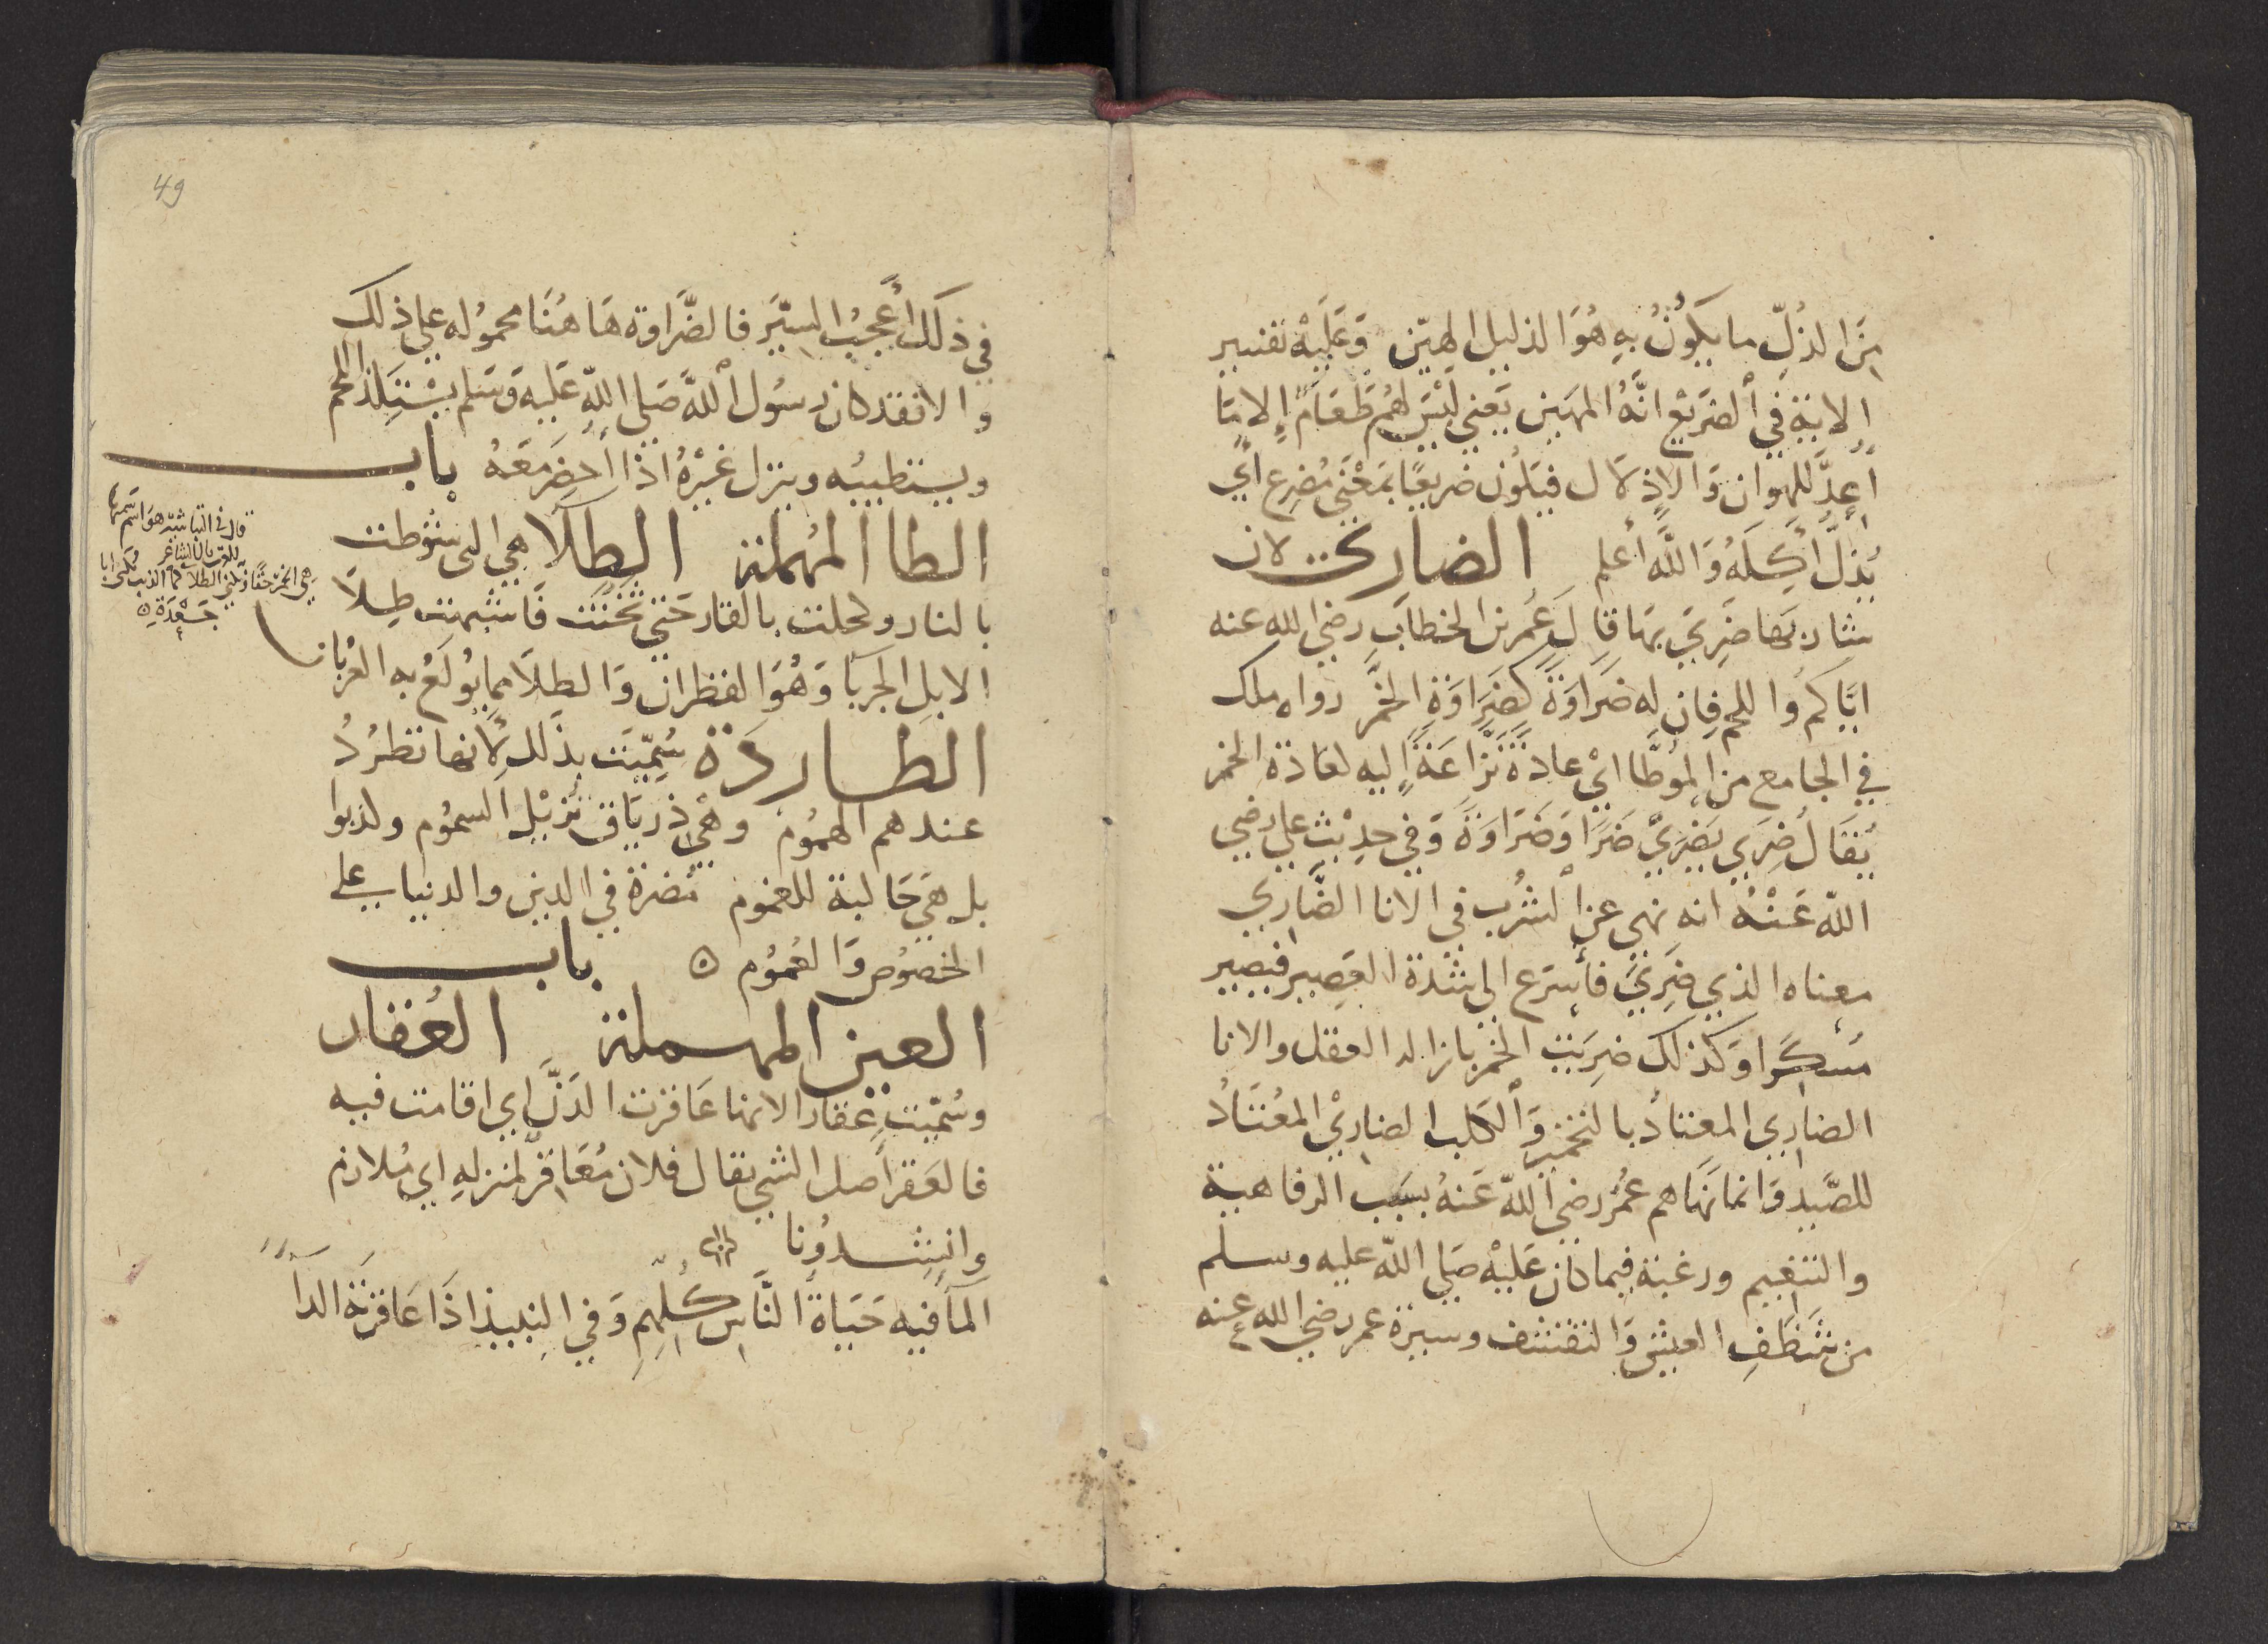 من الذل ما يكون به هُوَ الذليل المهين وَعَليْه تفسير
الاية في الضريع انَّهُ المهين يَعني ليْسَ لهُم طَعَام إلا مَا
أعِدَّ للهوان وَالإذلال فيَكُون ضريعًا بمَعْنى مُضرع أي
يُذِلّ أكِلَهُ وَاللَّه أعلم الضاري لان
شاربَها ضَرِيَ بهَا قال عُمر بن الخطاب رضي الله عنه
ايّاكم واللحم فان له ضَرَاوَة كضَرَاوَةِ الخَمْر رواه ملك
في الجامع من الموطَّا ايْ عادةً نَزَّاعَةً إليه لعادة الخمر
يُقَال ضَرِي يَضْرَي ضَرًا وَضَرَاوَةً وَفي حديث علي رضي
الله عَنْهُ انه نهي عن الشُرْب في الانا الضَّارِي
معناه الذي ضَرِيَ فأسرَع الي شدة العَصِير فيصير
مُسكرًا وَكذلك ضَرِيَت الخمر بازاله العقل والانا
الضاري المعتادُ بالتخمير وَالكلب الضاريْ المعْتَادُ
للصَّيد وَانما نَهَاهم عُمَرُ رضي اللّه عَنهُ بسَبَب الرفاهية
والتنعيم ورغبة فيما كان عَليْه صَلي اللّه عليه وسلم
من شَظَفِ العيش وَالتقشف وسيرة عمر رضي الله عنه
49
في ذلك أعجبُ السِّيَر فالضَّرَاوة هَاهُنَا محمولة علي ذلك
والا فقد كان رسُول اللَّه صَلي اللّه عَليه وَسَلم يسْتَلِذ اللحم
ويستطيبُه وينزل غيْرُهُ اذا أحضر مَعهُ باب
الطا المُهملة الطِلَا هي التي شوّطت
بالنار وكحلت بالقار حَتي ثخُنَت فَاشبهت طِلاَ
الابل الجَرْبَا وَهُوَ القطران وَالطلا مما يُولَعُ به العُربان
قال في التباشير هو اسم سَمتها
للعَرَب قال الشاعر
هي الخمرُ حقًا وتكني الطلا كما الذيب يُكني أبا
جَعْدَةِ ۞
الطاردة سُمِّيَت بذلك لأنها تطرُدُ
عندهم الهمُوم وهْي ذرياق تُزيل السمُوم وكذبوا
بل هَي جَالبة للغموم مُضرة في الدين والدنيا علي
الخصُوص وَالعُمُوم ۞ باب
العين المهملة العُقار
وسُمّيت عُقارا لانها عَاقرت الدَنَّ اي اقامت فيه
فالعَقر أصل الشي يقال فلان مُعَاقرٌ لمنزلهِ اي مُلازم
وانشدُونا
المآ فيه حَيَاة النَّاس كُلِّهِم وَفي النبيذ اذَا عَاقَرْتَهُ الدآ